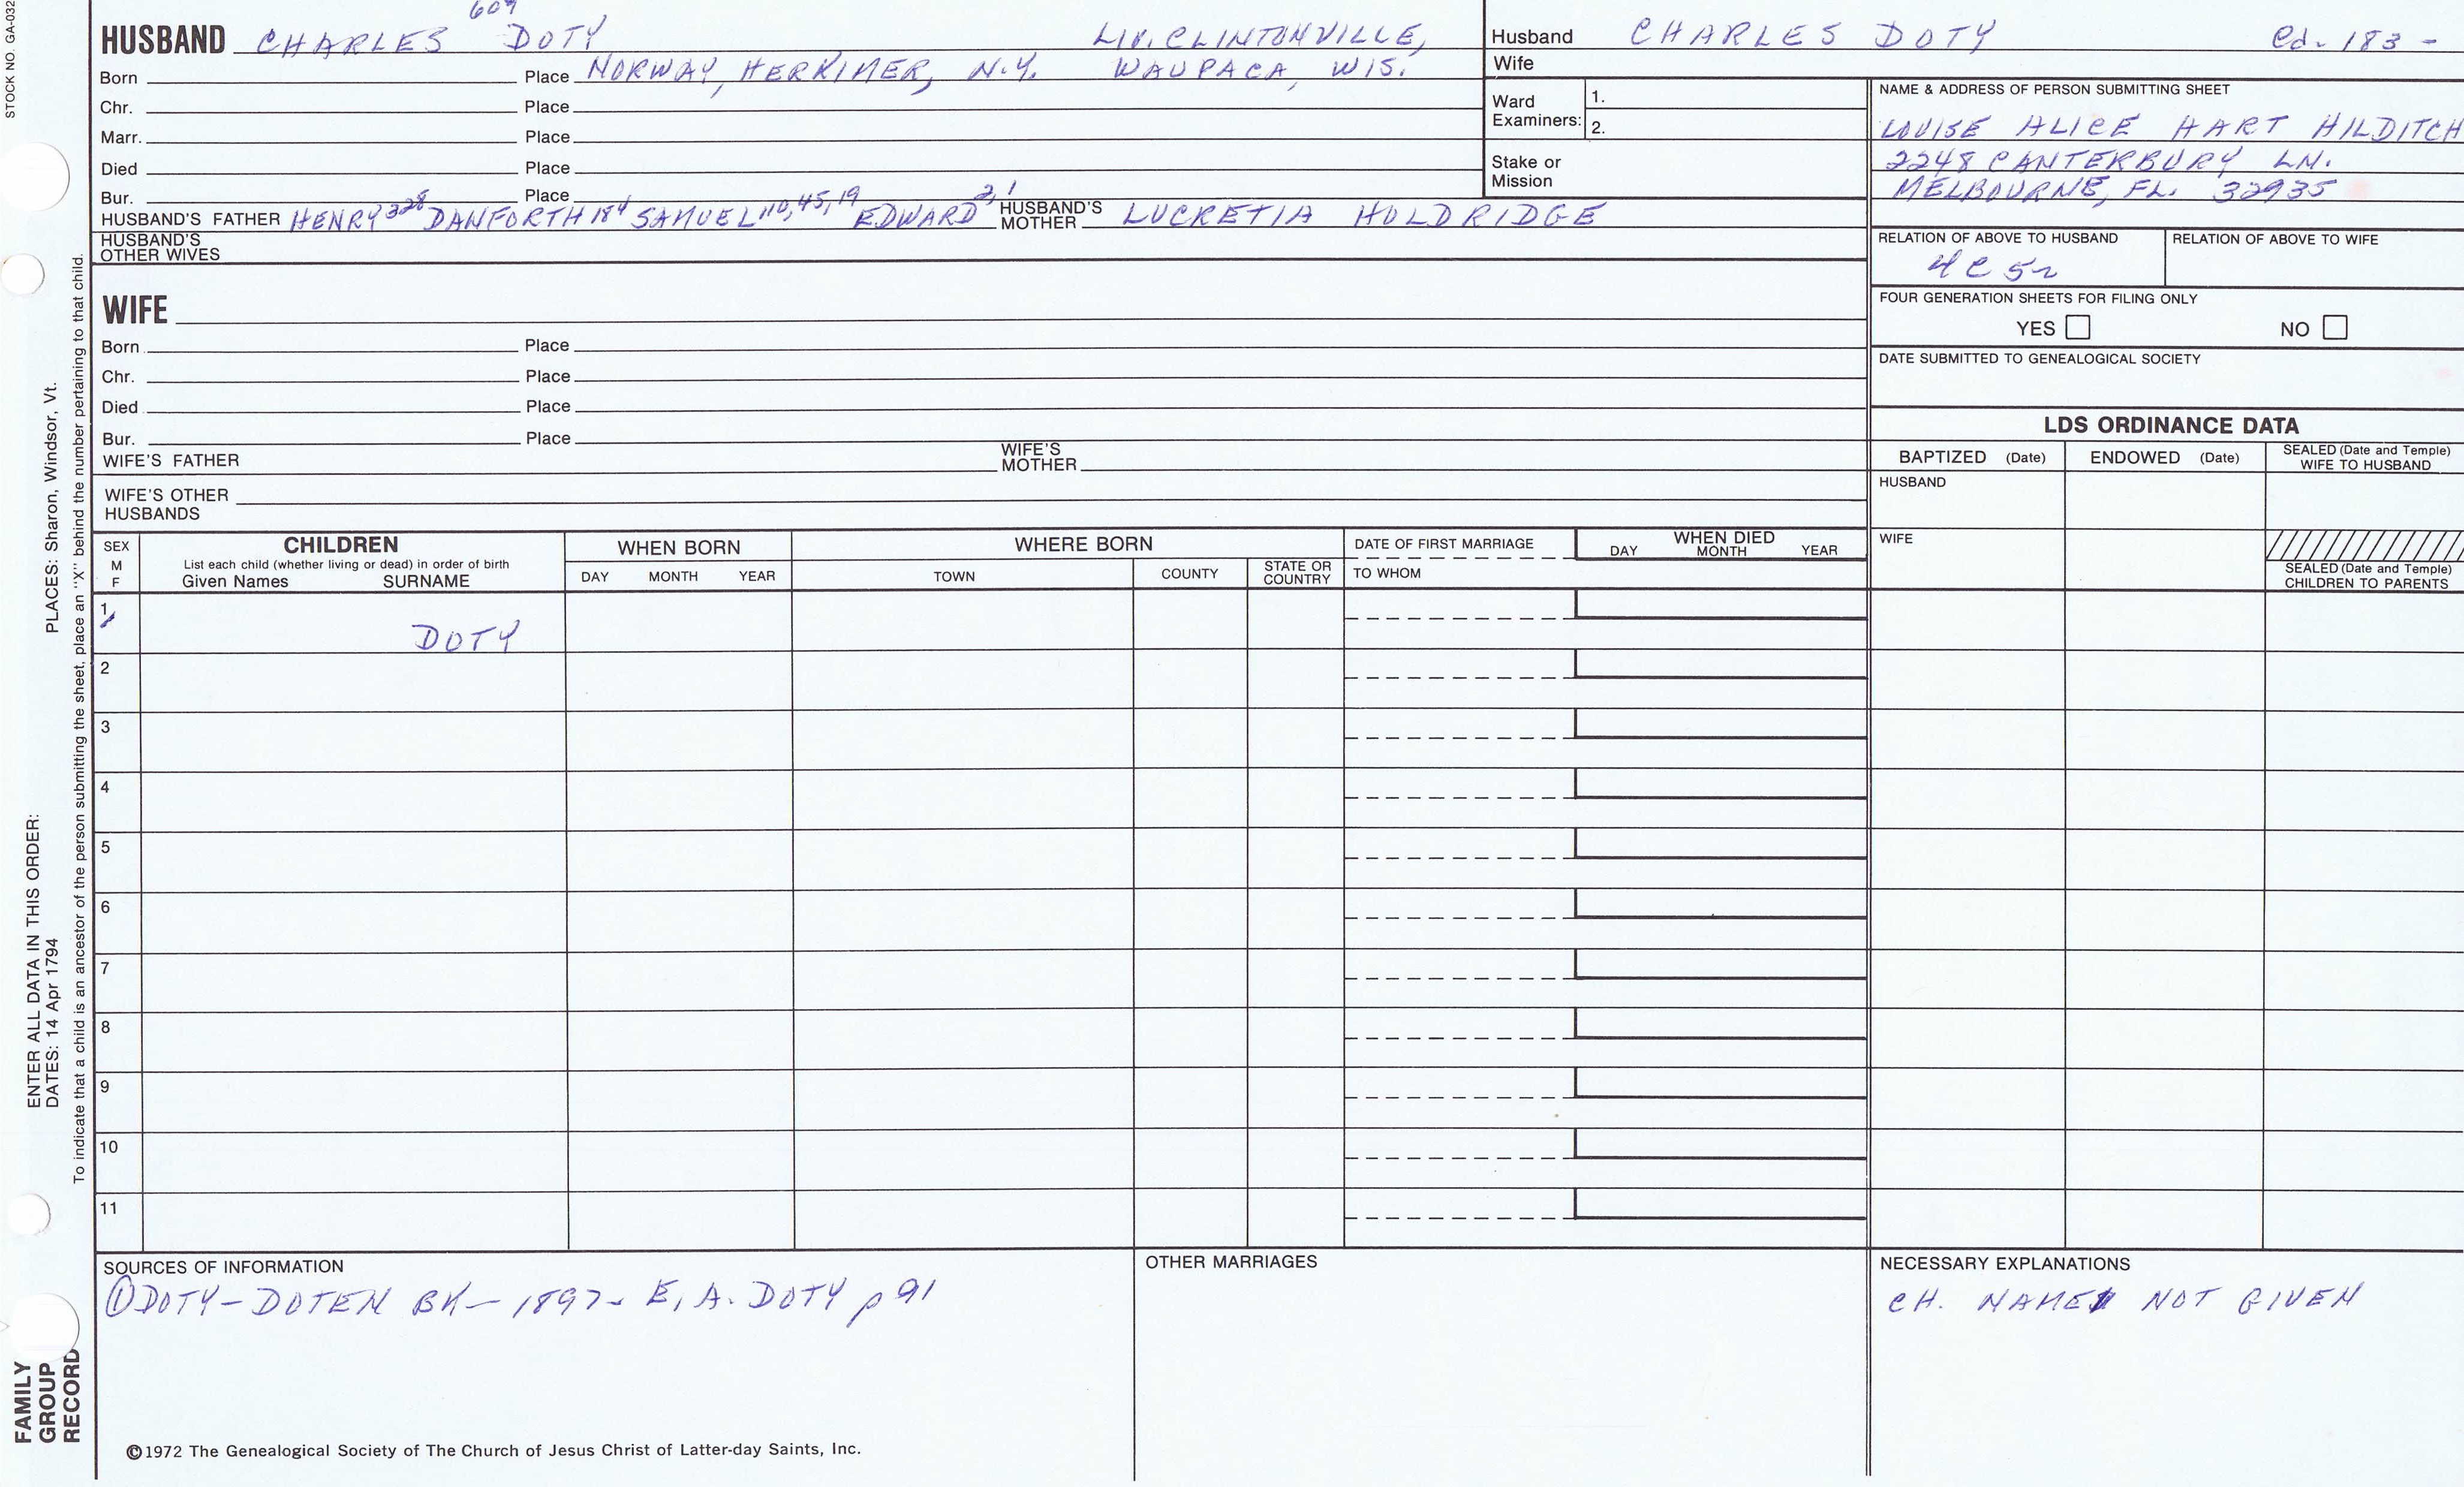 STOCK NO. GA-032
609
HUSBAND CHARLES DOTY LIV. CLINTONVILLE,
Born Place NORWAY, HERKIMER, N.Y. WAUPACA, WIS.
Chr. Place
Marr. Place
Died Place
Bur. Place
HUSBAND'S FATHER HENRY 328 DANFORTH 184 SAMUEL 110, 45, 19 EDWARD 2, 1 HUSBAND'S MOTHER LUCRETIA HOLDRIDGE
HUSBAND'S OTHER WIVES
WIFE
Born Place
Chr. Place
Died Place
Bur. Place
WIFE'S FATHER WIFE'S MOTHER
WIFE'S OTHER HUSBANDS
Husband CHARLES DOTY Cd. 183 -
Wife
Ward Examiners: 1.
2.
Stake or Mission
NAME & ADDRESS OF PERSON SUBMITTING SHEET
LOUISE ALICE HART HILDITCH
2248 CANTERBURY LN.
MELBOURNE, FL. 32935
RELATION OF ABOVE TO HUSBAND RELATION OF ABOVE TO WIFE
4C5r
FOUR GENERATION SHEETS FOR FILING ONLY
YES NO
DATE SUBMITTED TO GENEALOGICAL SOCIETY
LDS ORDINANCE DATA
BAPTIZED (Date) ENDOWED (Date) SEALED (Date and Temple) WIFE TO HUSBAND
HUSBAND
WIFE
SEALED (Date and Temple) CHILDREN TO PARENTS
SEX M F
CHILDREN
List each child (whether living or dead) in order of birth
Given Names SURNAME
WHEN BORN
DAY MONTH YEAR
WHERE BORN
TOWN COUNTY STATE OR COUNTRY
DATE OF FIRST MARRIAGE
TO WHOM
WHEN DIED
DAY MONTH YEAR
1 DOTY
2
3
4
5
6
7
8
9
10
11
SOURCES OF INFORMATION
① DOTY-DOTEN BK - 1897 - E. A. DOTY p 91
OTHER MARRIAGES
NECESSARY EXPLANATIONS
CH. NAME NOT GIVEN
©1972 The Genealogical Society of The Church of Jesus Christ of Latter-day Saints, Inc.
ENTER ALL DATA IN THIS ORDER:
DATES: 14 Apr 1794 PLACES: Sharon, Windsor, Vt.
To indicate that a child is an ancestor of the person submitting the sheet, place an "X" behind the number pertaining to that child.
FAMILY
GROUP
RECORD